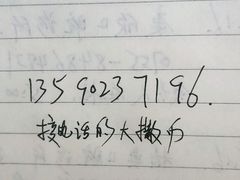 13590237196.
接电话的大撒币